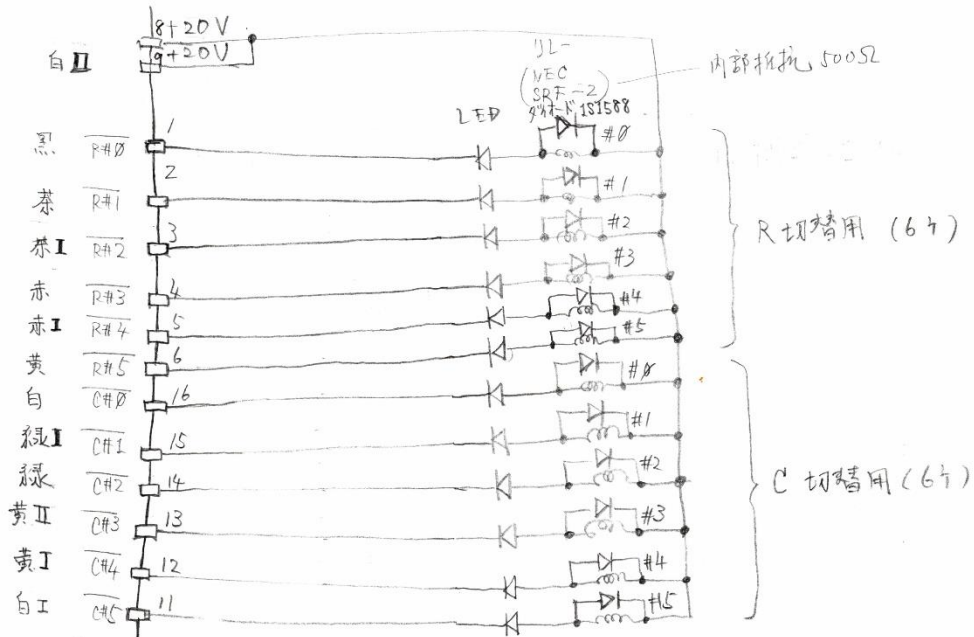 8+20V
9+20V
白II
リレー
(NEC
SRF-2)
ダイオード1S1588
内部抵抗 500Ω
LED
黒 R#0 1 #0
茶 R#1 2 #1
茶I R#2 3 #2
赤 R#3 4 #3
赤I R#4 5 #4
黄 R#5 6 #5
R切替用 (6ケ)
白 C#0 16 #0
緑I C#1 15 #1
緑 C#2 14 #2
黄II C#3 13 #3
黄I C#4 12 #4
白I C#5 11 #5
C切替用 (6ケ)